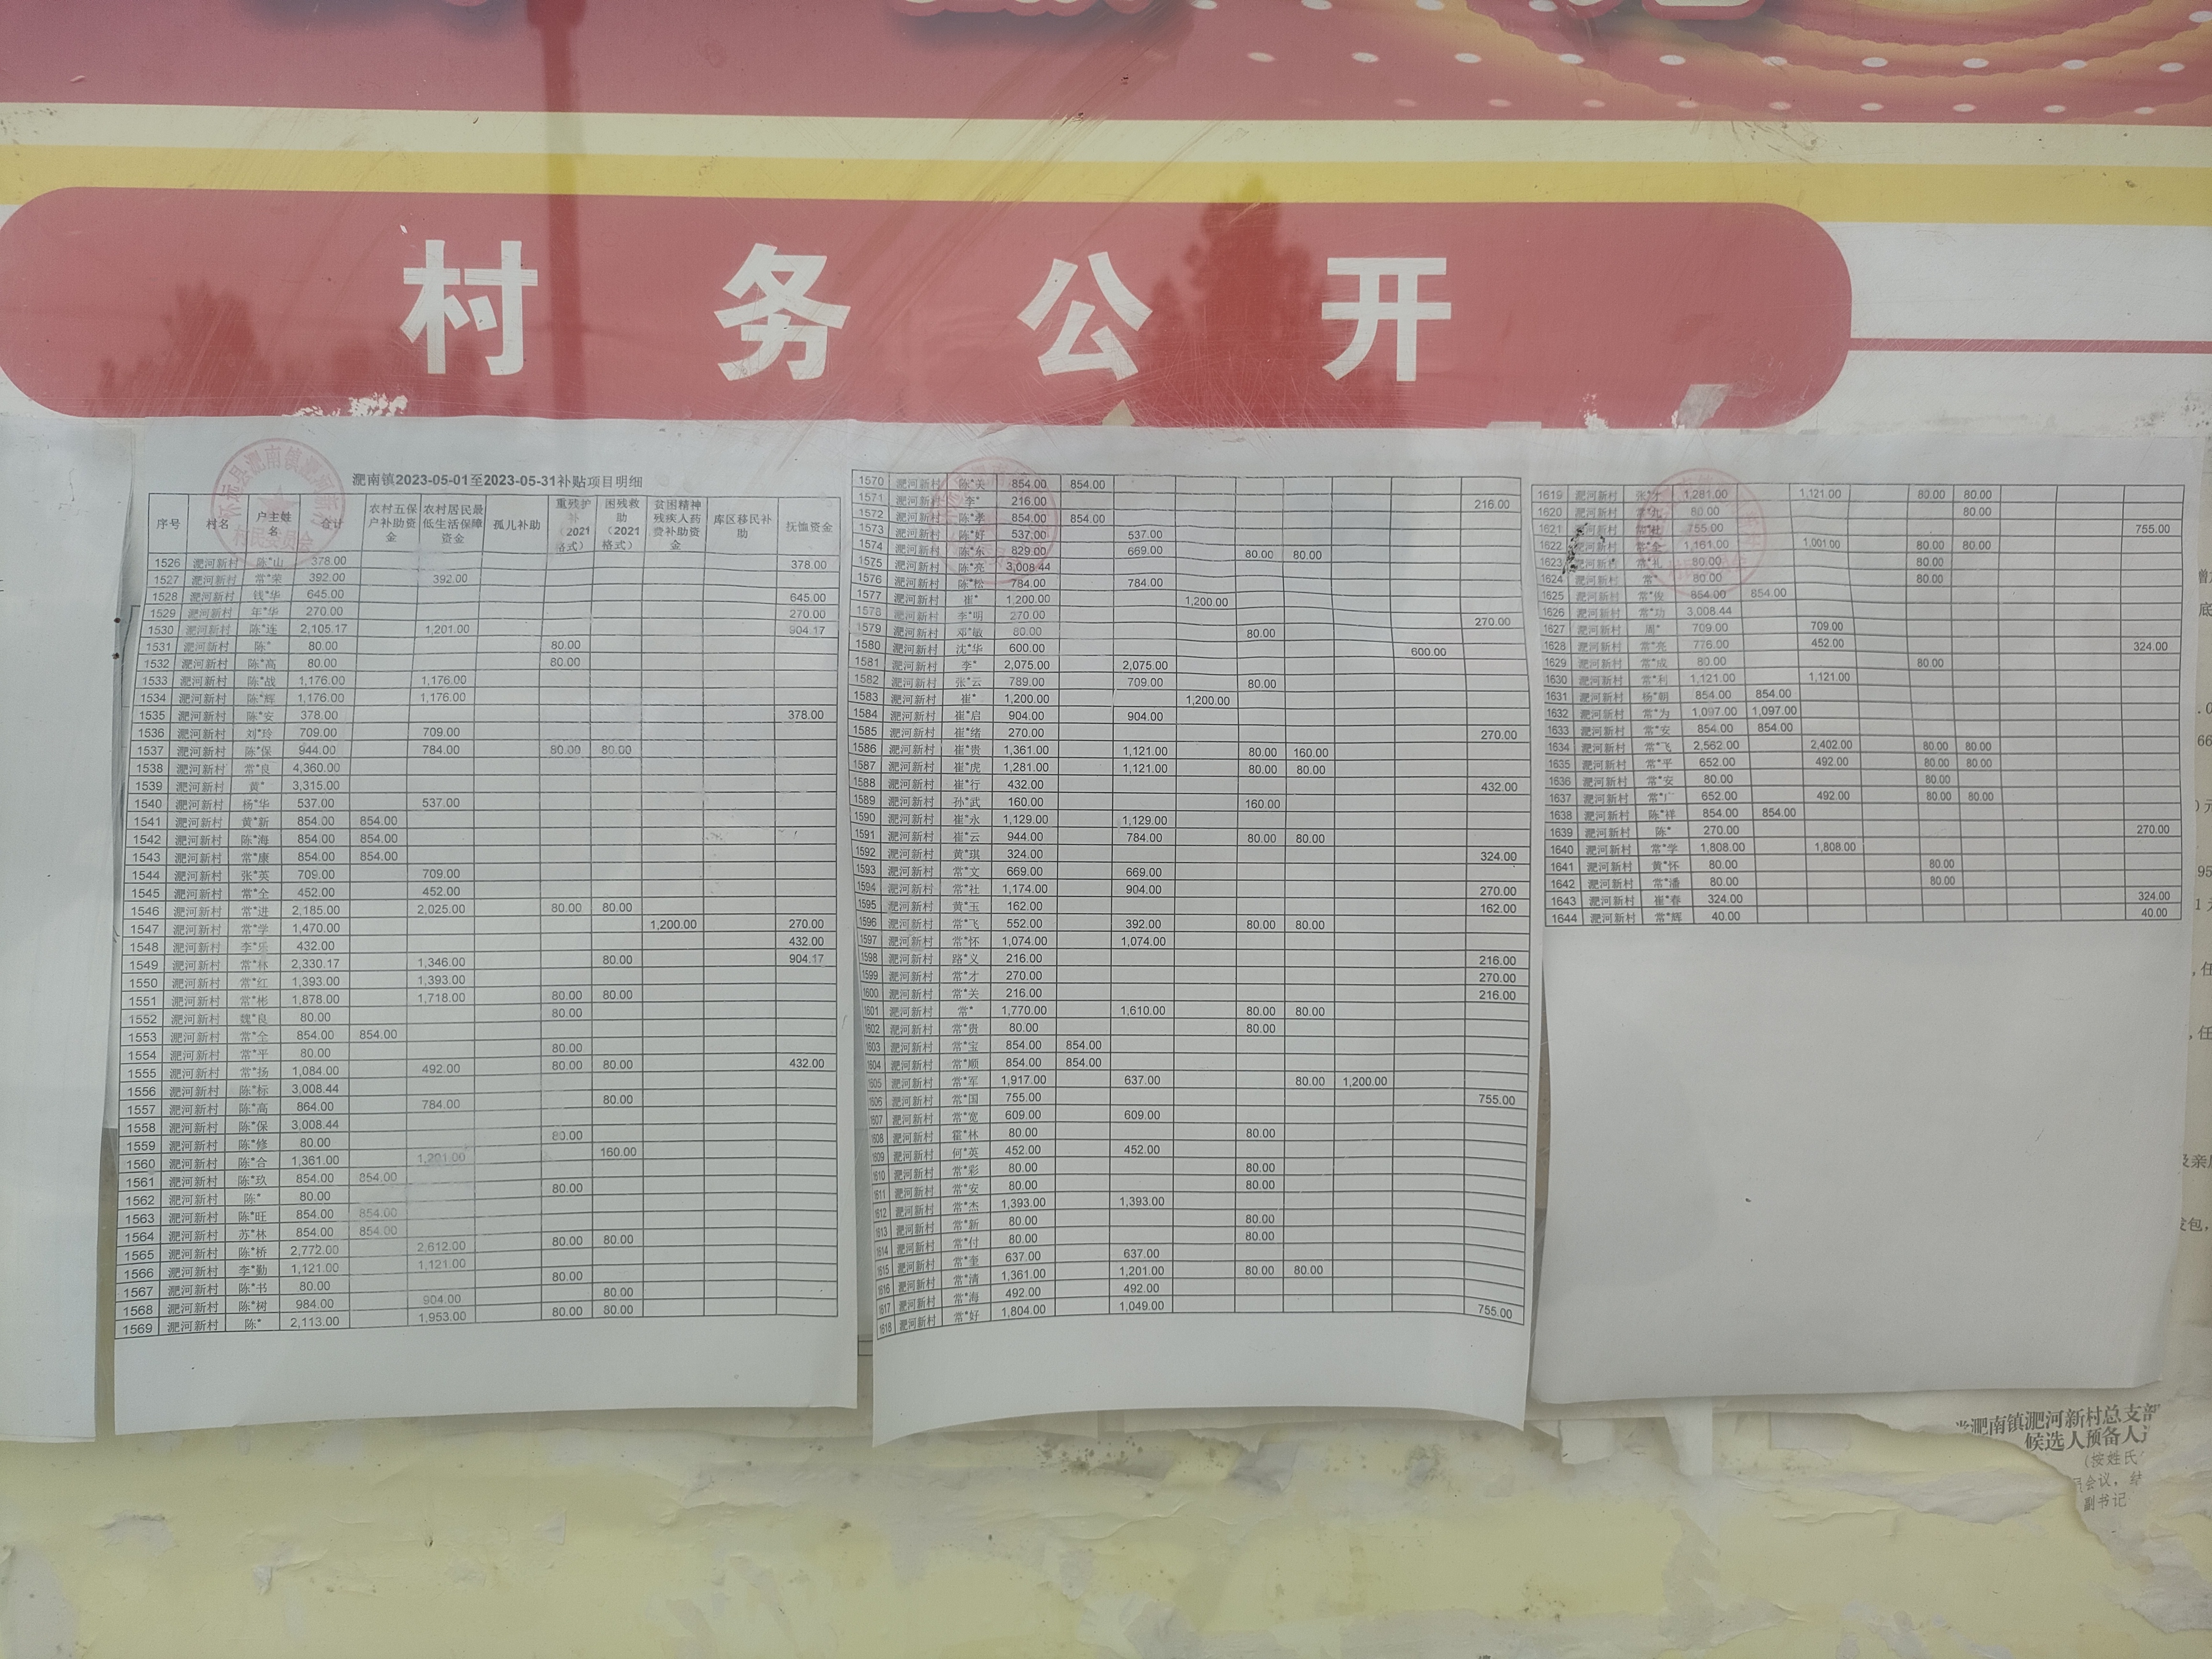 村务公开
淝南镇2023-05-01至2023-05-31补贴项目明细
序号 村名 户主姓名 合计 农村五保户补助资金 农村居民最低生活保障资金 孤儿补助 重残护补（2021格式） 困残救助（2021格式） 贫困精神残疾人药费补助资金 库区移民补助 抚恤资金
1526 淝河新村 陈*山 378.00 378.00
1527 淝河新村 常*荣 392.00 392.00
1528 淝河新村 钱*华 645.00 645.00
1529 淝河新村 年*华 270.00 270.00
1530 淝河新村 陈*连 2,105.17 1,201.00 904.17
1531 淝河新村 陈* 80.00 80.00
1532 淝河新村 陈*高 80.00 80.00
1533 淝河新村 陈*战 1,176.00 1,176.00
1534 淝河新村 陈*辉 1,176.00 1,176.00
1535 淝河新村 陈*安 378.00 378.00
1536 淝河新村 刘*玲 709.00 709.00
1537 淝河新村 陈*保 944.00 784.00 80.00 80.00
1538 淝河新村 常*良 4,360.00
1539 淝河新村 黄* 3,315.00
1540 淝河新村 杨*华 537.00 537.00
1541 淝河新村 黄*新 854.00 854.00
1542 淝河新村 陈*海 854.00 854.00
1543 淝河新村 常*康 854.00 854.00
1544 淝河新村 张*英 709.00 709.00
1545 淝河新村 常*全 452.00 452.00
1546 淝河新村 常*进 2,185.00 2,025.00 80.00 80.00
1547 淝河新村 常*学 1,470.00 1,200.00 270.00
1548 淝河新村 李*乐 432.00 432.00
1549 淝河新村 常*林 2,330.17 1,346.00 80.00 904.17
1550 淝河新村 常*红 1,393.00 1,393.00
1551 淝河新村 常*彬 1,878.00 1,718.00 80.00 80.00
1552 淝河新村 魏*良 80.00 80.00
1553 淝河新村 常*全 854.00 854.00
1554 淝河新村 常*平 80.00 80.00
1555 淝河新村 常*扬 1,084.00 492.00 80.00 80.00 432.00
1556 淝河新村 陈*标 3,008.44
1557 淝河新村 陈*高 864.00 784.00 80.00
1558 淝河新村 陈*保 3,008.44
1559 淝河新村 陈*修 80.00 80.00
1560 淝河新村 陈*合 1,361.00 1,201.00 160.00
1561 淝河新村 陈*玖 854.00 854.00
1562 淝河新村 陈* 80.00 80.00
1563 淝河新村 陈*旺 854.00 854.00
1564 淝河新村 苏*林 854.00 854.00
1565 淝河新村 陈*桥 2,772.00 2,612.00 80.00 80.00
1566 淝河新村 李*勤 1,121.00 1,121.00
1567 淝河新村 陈*书 80.00 80.00
1568 淝河新村 陈*树 984.00 904.00 80.00
1569 淝河新村 陈* 2,113.00 1,953.00 80.00 80.00
1570 淝河新村 陈*关 854.00 854.00
1571 淝河新村 李* 216.00 216.00
1572 淝河新村 陈*孝 854.00 854.00
1573 淝河新村 陈*好 537.00 537.00
1574 淝河新村 陈*东 829.00 669.00 80.00 80.00
1575 淝河新村 陈*亮 3,008.44
1576 淝河新村 陈*松 784.00 784.00
1577 淝河新村 崔* 1,200.00 1,200.00
1578 淝河新村 李*明 270.00 270.00
1579 淝河新村 邓*敏 80.00 80.00
1580 淝河新村 沈*华 600.00 600.00
1581 淝河新村 李* 2,075.00 2,075.00
1582 淝河新村 张*云 789.00 709.00 80.00
1583 淝河新村 崔* 1,200.00 1,200.00
1584 淝河新村 崔*启 904.00 904.00
1585 淝河新村 崔*绪 270.00 270.00
1586 淝河新村 崔*贵 1,361.00 1,121.00 80.00 160.00
1587 淝河新村 崔*虎 1,281.00 1,121.00 80.00 80.00
1588 淝河新村 崔*行 432.00 432.00
1589 淝河新村 孙*武 160.00 160.00
1590 淝河新村 崔*永 1,129.00 1,129.00
1591 淝河新村 崔*云 944.00 784.00 80.00 80.00
1592 淝河新村 黄*琪 324.00 324.00
1593 淝河新村 常*文 669.00 669.00
1594 淝河新村 常*社 1,174.00 904.00 270.00
1595 淝河新村 黄*玉 162.00 162.00
1596 淝河新村 常*飞 552.00 392.00 80.00 80.00
1597 淝河新村 常*怀 1,074.00 1,074.00
1598 淝河新村 路*义 216.00 216.00
1599 淝河新村 常*才 270.00 270.00
1600 淝河新村 常*关 216.00 216.00
1601 淝河新村 常* 1,770.00 1,610.00 80.00 80.00
1602 淝河新村 常*贵 80.00 80.00
1603 淝河新村 常*宝 854.00 854.00
1604 淝河新村 常*顺 854.00 854.00
1605 淝河新村 常*军 1,917.00 637.00 80.00 1,200.00
1606 淝河新村 常*国 755.00 755.00
1607 淝河新村 常*宽 609.00 609.00
1608 淝河新村 霍*林 80.00 80.00
1609 淝河新村 何*英 452.00 452.00
1610 淝河新村 常*彩 80.00 80.00
1611 淝河新村 常*安 80.00 80.00
1612 淝河新村 常*杰 1,393.00 1,393.00
1613 淝河新村 常*新 80.00 80.00
1614 淝河新村 常*付 80.00 80.00
1615 淝河新村 常*奎 637.00 637.00
1616 淝河新村 常*清 1,361.00 1,201.00 80.00 80.00
1617 淝河新村 常*海 492.00 492.00
1618 淝河新村 常*好 1,804.00 1,049.00 755.00
1619 淝河新村 张*才 1,281.00 1,121.00 80.00 80.00
1620 淝河新村 80.00 80.00
1621 淝河新村 755.00 755.00
1622 淝河新村 常*全 1,161.00 1,001.00 80.00 80.00
1623 淝河新村 常*礼 80.00 80.00
1624 淝河新村 常* 80.00 80.00
1625 淝河新村 常*俊 854.00 854.00
1626 淝河新村 常*功 3,008.44
1627 淝河新村 周* 709.00 709.00
1628 淝河新村 常*亮 776.00 452.00 324.00
1629 淝河新村 常*成 80.00 80.00
1630 淝河新村 常*利 1,121.00 1,121.00
1631 淝河新村 杨*朝 854.00 854.00
1632 淝河新村 常*为 1,097.00 1,097.00
1633 淝河新村 常*安 854.00 854.00
1634 淝河新村 常*飞 2,562.00 2,402.00 80.00 80.00
1635 淝河新村 常*平 652.00 492.00 80.00 80.00
1636 淝河新村 常*安 80.00 80.00
1637 淝河新村 常*广 652.00 492.00 80.00 80.00
1638 淝河新村 陈*祥 854.00 854.00
1639 淝河新村 陈* 270.00 270.00
1640 淝河新村 常*学 1,808.00 1,808.00
1641 淝河新村 黄*怀 80.00 80.00
1642 淝河新村 常*潘 80.00 80.00
1643 淝河新村 崔*春 324.00 324.00
1644 淝河新村 常*辉 40.00 40.00
淝南镇淝河新村总支部
候选人预备人
（按姓氏
会议，
副书记